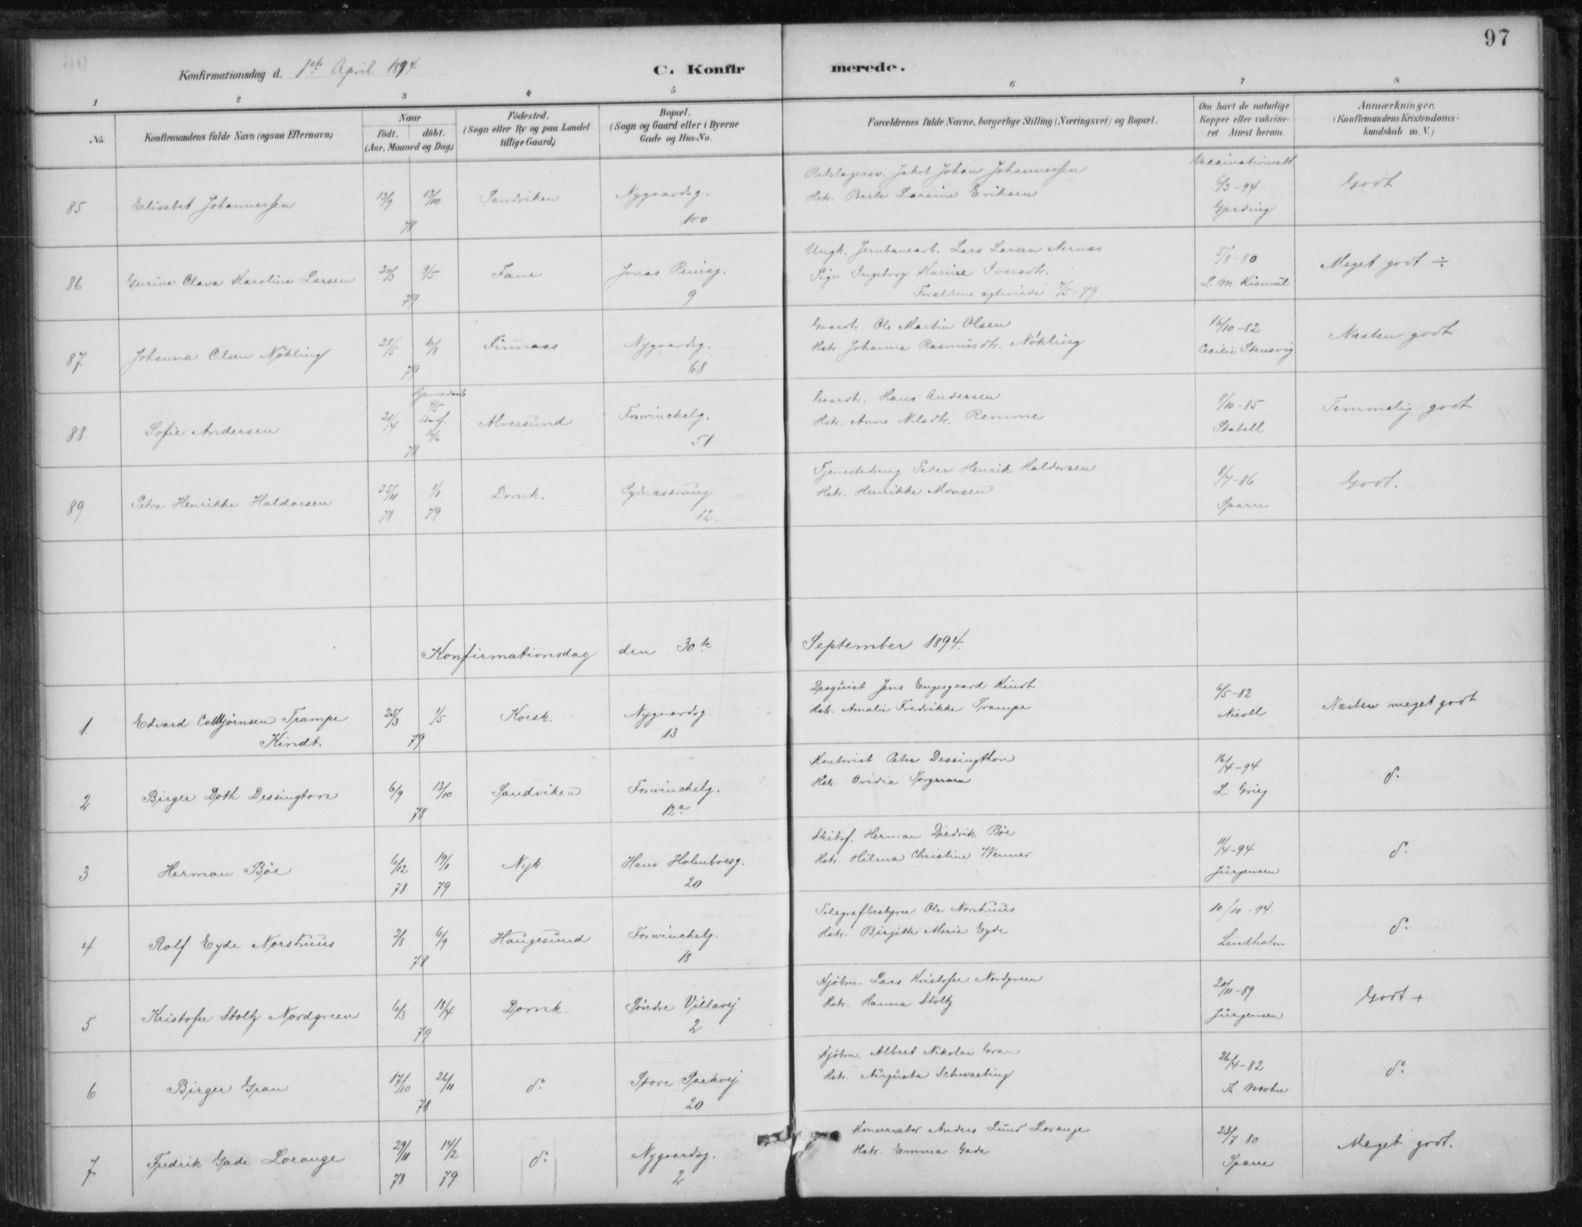 97
Konfirmationsdag d. 1ste April 1894
C. Konfirmerede.
1 2 3 4 5 6 7 8
No.
Konfirmandens fulde Navn (ogsaa Efternavn)
Naar
født. døbt.
(Aar, Maaned og Dag)
Fødested.
(Sogn eller By og paa Landet
tillige Gaard)
Bopæl.
(Sogn og Gaard eller i Byerne
Gade og Hus-No.
Forældrenes fulde Navne, borgerlige Stilling (Næringsvei) og Bopæl.
Om havt de naturlige
Kopper eller vaccineret. Attest herom.
Anmærkninger.
(Konfirmandens Kristendomskundskab m. V.)
85 Elisabet Johannessen 13/9 13/10 78 Sandviken Nygaardsg. 100
Jakob Johan Johannessen
Hstr. Berte Larsine Eriksen
6/3-94
Godt
86 Gurine Olava Karoline Larsen 9/5 79 Fane Jonas Reinsg. 9
Ungk. Jernbanearb. Lars Larsen Nernæs
Pige Ingeborg Karine Iversdtr.
-80
Meget godt ÷
87 Johanna Olsen Nøkling 28/5 79 Finnaas Nygaardsg. 68
Ole Martin Olsen
Hstr. Johanna Rasmusdtr. Nøkling
16/10-82
Cecilie Stensvig
Næsten godt
88 Sofie Andersen 21/4 78 Alversund Forwinckelg. 51
Hans Andersen
Hstr. Anne Nilsdtr. Remme
8/10-85
Stabell
Temmelig godt
89 Petra Henrikke Haldorsen 25/11 78 1/1 79 Domk. Sydnessmug 12.
Peder Henrik Haldorsen
Hstr. Henrikke Monsen
8/7-86
Sparre
Godt.
Konfirmationsdag den 30te September 1894.
1 Edvard Collbjørnsen Trampe
Kindt. 25/3 1/5 79 Korsk. Nygaardsg. 13
Droguist Jens Engesgaard Kindt
Hstr. Amalie Fredrikke Trampe
6/5-82
Nicoll
Næsten meget godt
2 Birger Doth Dessington 6/9 13/10 78 Sandviken Forwinckelg. 12a
Kontorist Peter Dessingthon
Hstr. Ovidia
16/4-94
L. Grieg
do
3 Herman Bøe 6/12 78 19/1 79 Nyk. Hans Holmboesg. 20
Skibsf. Herman Diedrik Bøe
Hstr. Hilma Christine Werner
11/4-94
Jürgensen
do
4 Rolf Eyde Norshuus 2/8 6/9 78 Haugesund Forwinckelg. 18
Telegrafbestyrer Ole Norshuus
Hstr. Birgitte Marie Eyde
10/10-94
Lindholm
do
5 Kristofer Stoltz Nordgreen 6/3 18/4 79 Domk. Søndre Villavej 2
Kjøbm. Lars Kristofer Nordgreen
Hstr. Hanna Stoltz
20/11-89
Jürgensen
Godt +
6 Birger Gran 17/10 26/11 78 do Store Parkvej 20
Kjøbm. Albert Nikolai Gran
Hstr. Augusta Schwarting
26/4-82
do
7 Fredrik Gade Lorange 29/11 78 14/2 79 do Nygaardsg. 2
Konservator Anders Lund Lorange
Hstr. Emma Gade
23/7 80
Sparre
Meget godt.